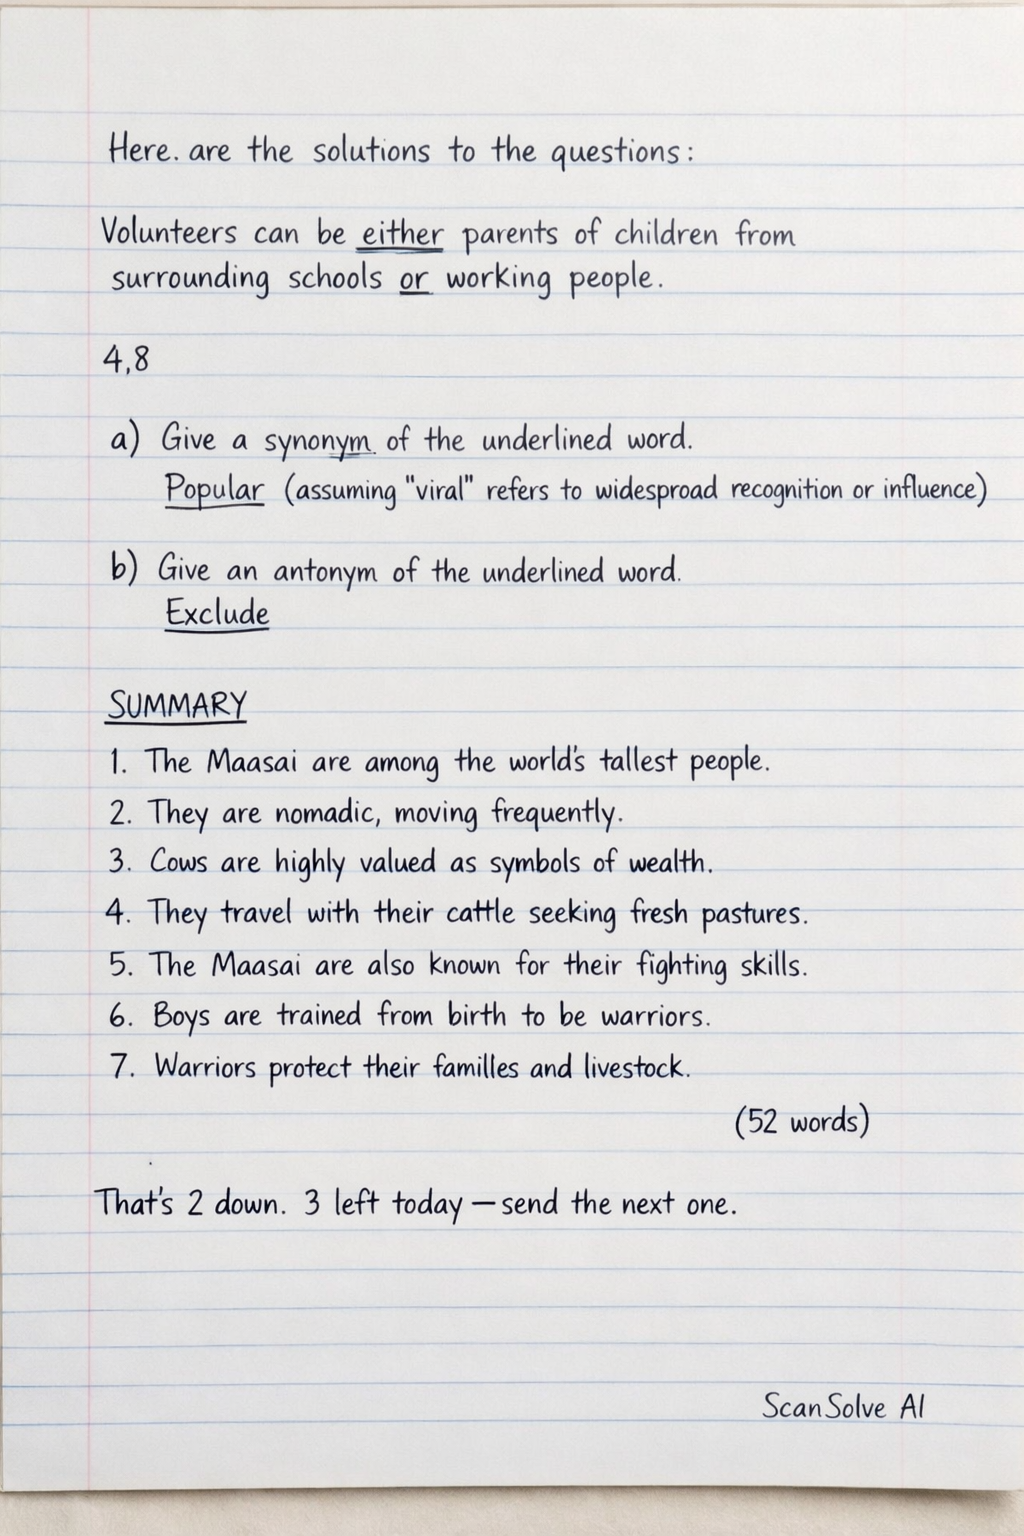 Here. are the solutions to the questions:
Volunteers can be either parents of children from
surrounding schools or working people.
4,8
a) Give a synonym. of the underlined word.
Popular (assuming "viral" refers to widesproad recognition or influence)
b) Give an antonym of the underlined word.
Exclude
SUMMARY
1. The Maasai are among the world's tallest people.
2. They are nomadic, moving frequently.
3. Cows are highly valued as symbols of wealth.
4. They travel with their cattle seeking fresh pastures.
5. The Maasai are also known for their fighting skills.
6. Boys are trained from birth to be warriors.
7. Warriors protect their familles and livestock.
(52 words)
That's 2 down. 3 left today — send the next one.
ScanSolve AI